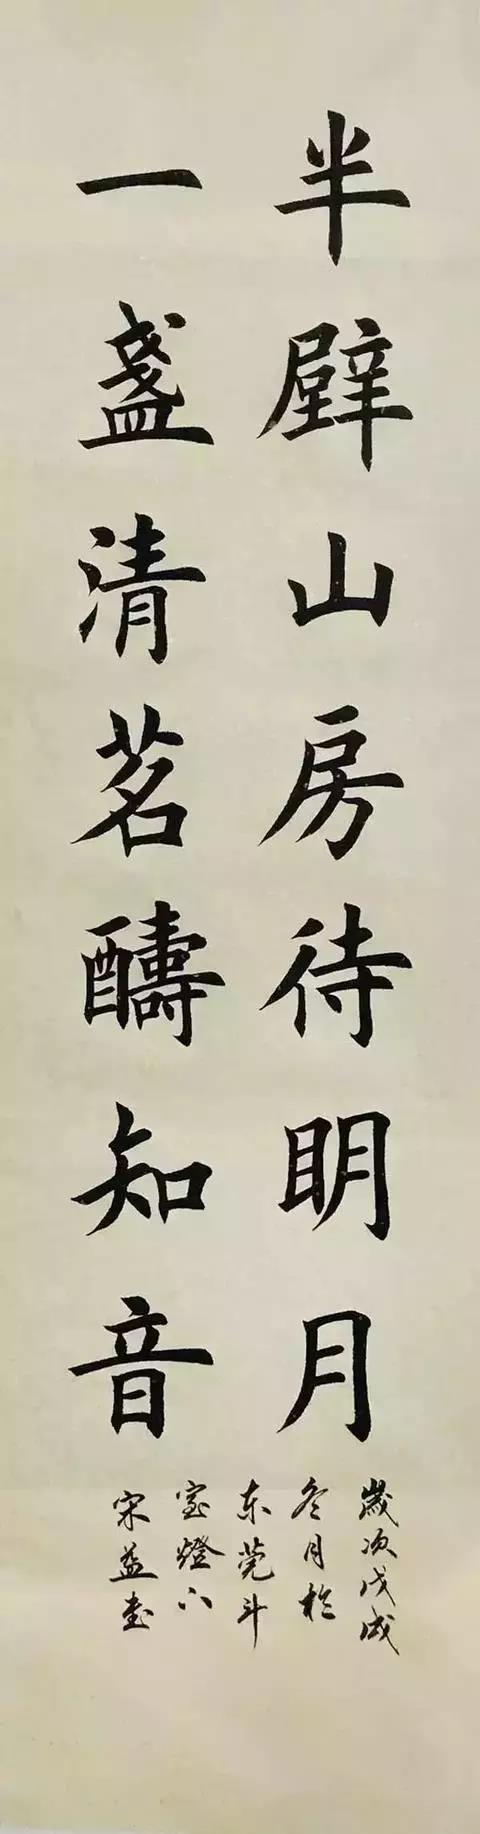 半壁山房待明月
一盏清茗醻知音
歲次戊戌
冬月於
东莞斗
室燈下
宋益书